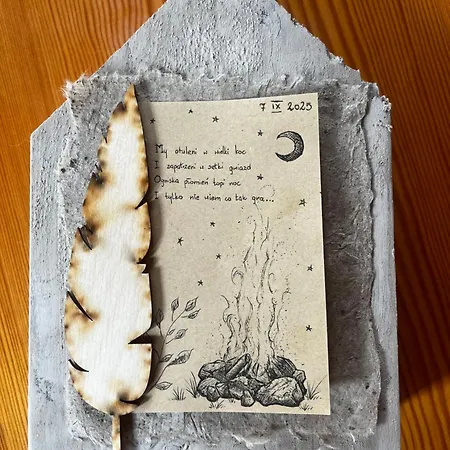 7 IX 2025
My otuleni w wielki koc
I zapatrzeni w setki gwiazd
Ogniska płomień topi noc
I tylko nie wiem co tak gra...